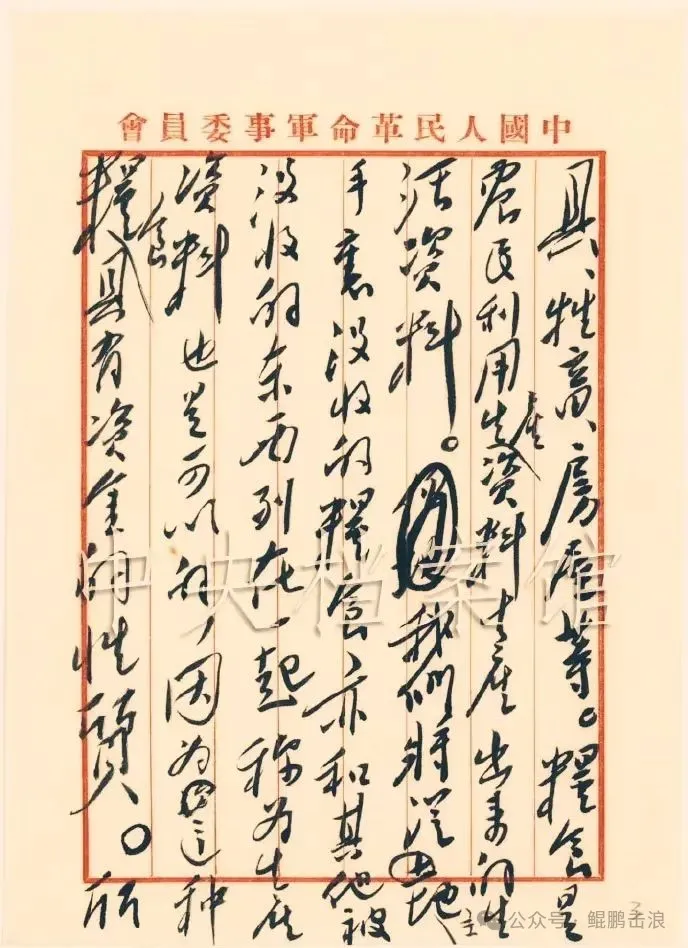 中國人民革命軍事委員會
具、牲畜、房屋等。糧食是
農民利用生產資料生產出來的生
活資料。我們將從地主
手裏沒收的糧食，亦和其他被
沒收的東西列在一起稱為生產
資料也是可以的，因為這種
糧食具有資金的性質。所
中央档案馆
公众号：鲲鹏击浪